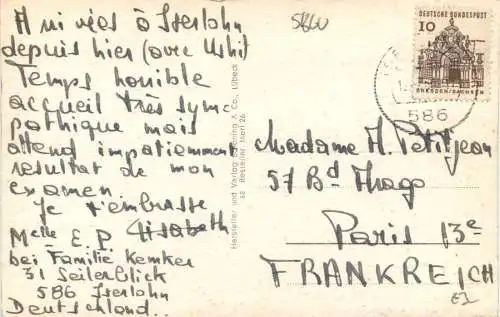 Arrivées à Iserlohn
depuis hier (avec Ushi)
Temps horrible
accueil très sym-
pathique mais
attend impatiemment
resultat de mon
examen
Je t'embrasse
Elisabeth
Melle E. P.
bei Familie Kemker
31 Seilerblick
586 Iserlohn
Deutschland..
5860
DEUTSCHE BUNDESPOST
10
DRESDEN/SACHSEN
586
Hersteller und Verlag & Co., Lübeck
Bestellnr.
Madame M. Petitjean
57 Bd Thago
Paris 13e
FRANKREICH